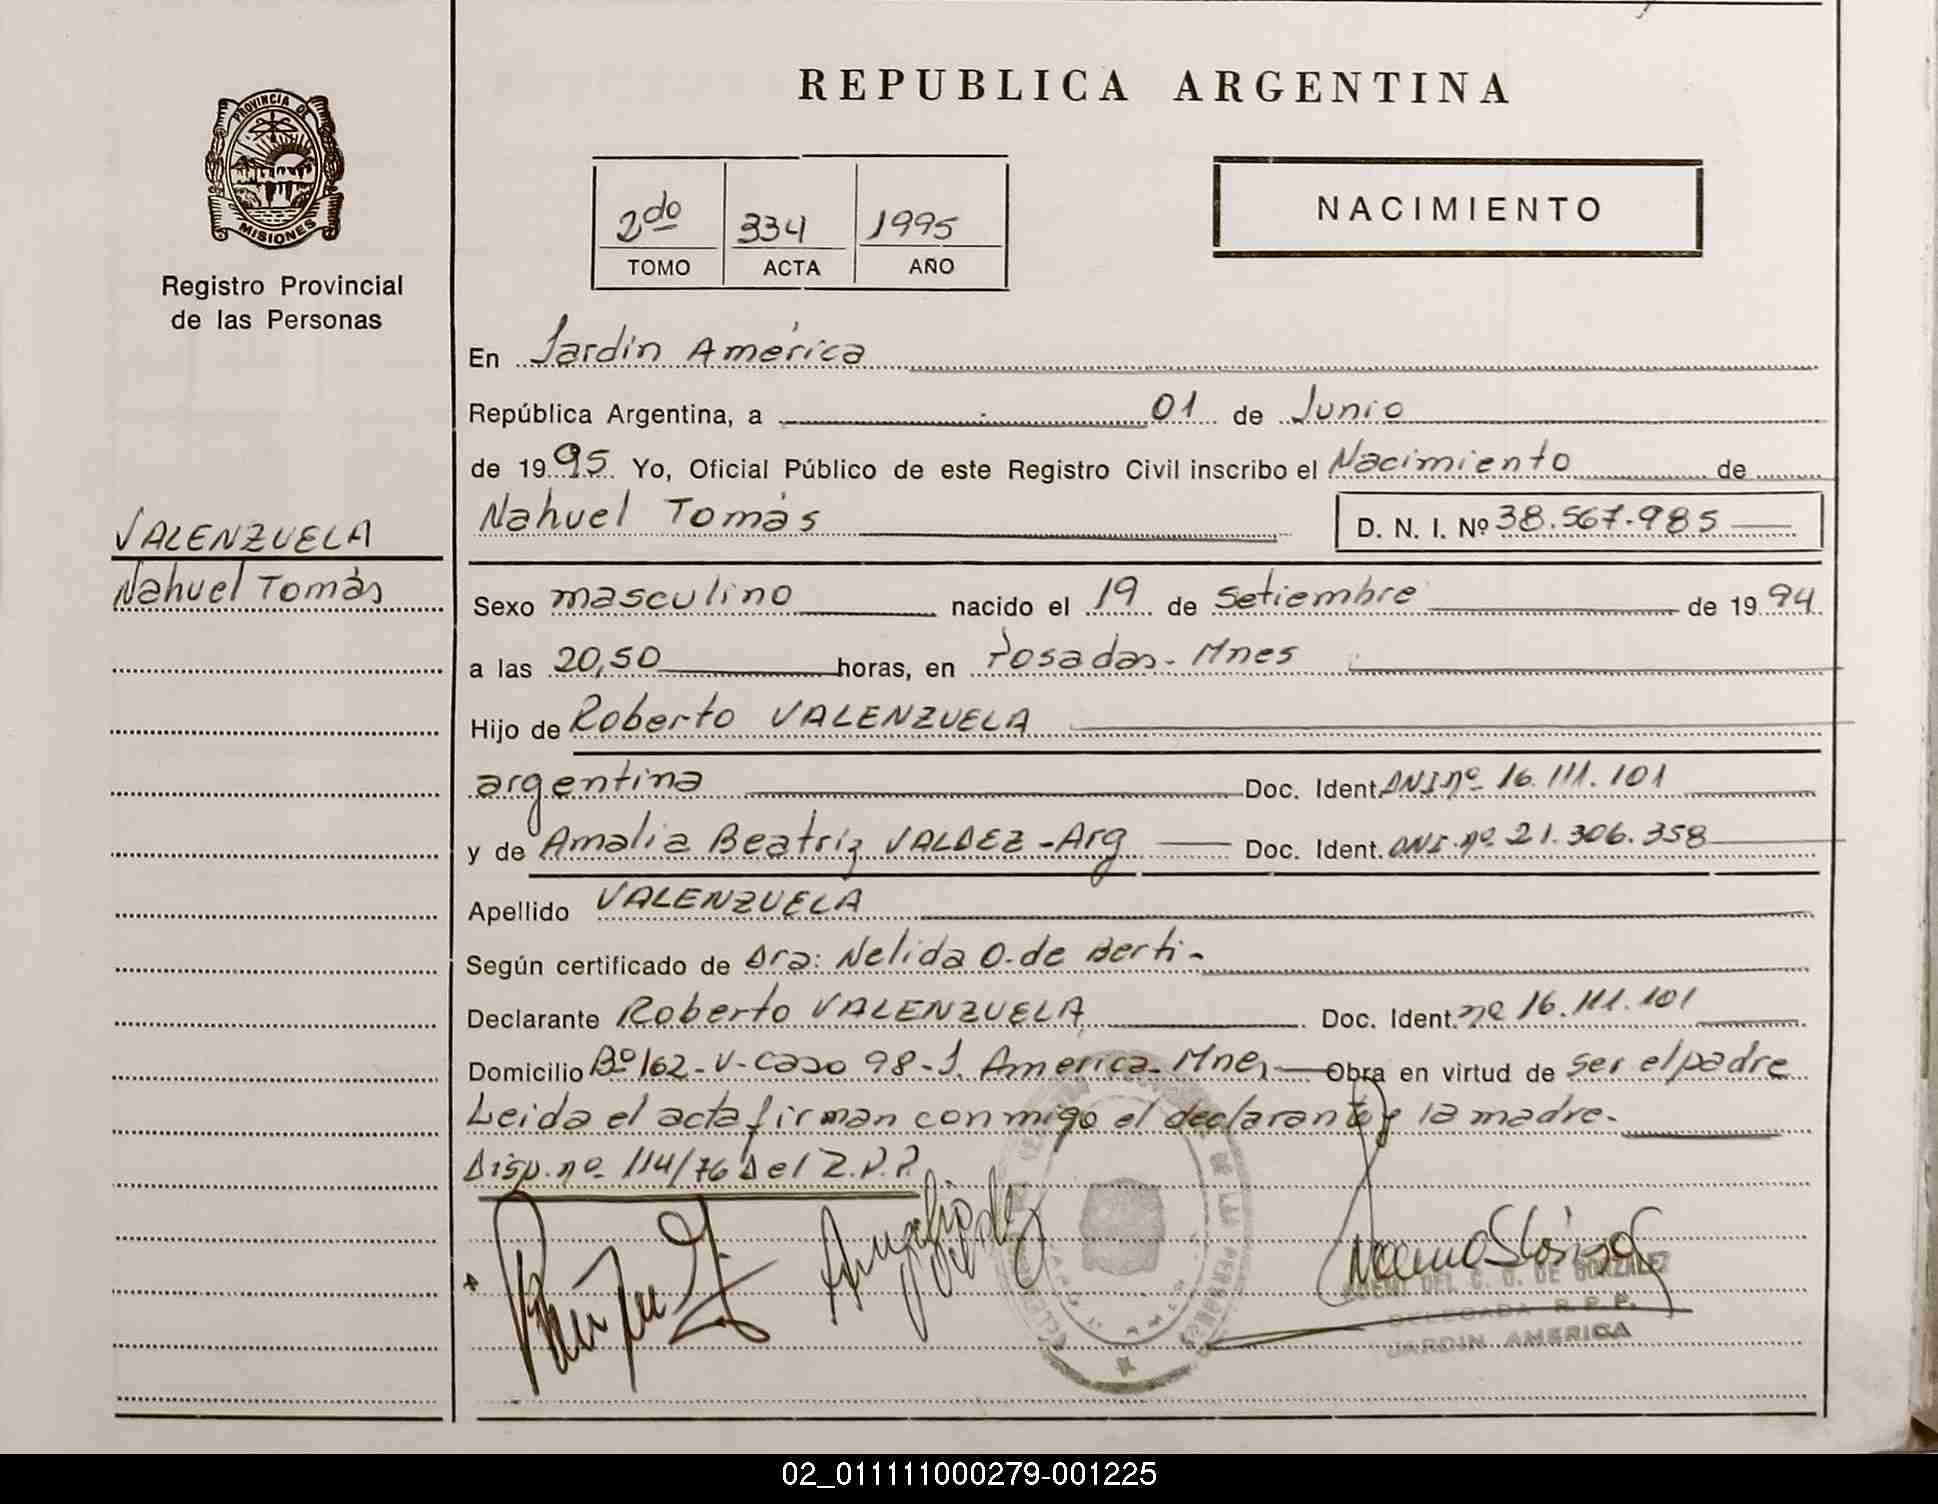 REPUBLICA ARGENTINA
PROVINCIA DE
MISIONES
Registro Provincial
de las Personas
2do 334 1995
TOMO ACTA AÑO
NACIMIENTO
En Jardín América
República Argentina, a 01 de Junio
de 1995 Yo, Oficial Público de este Registro Civil inscribo el Nacimiento de
Nahuel Tomás D. N. I. Nº 38.567.985
VALENZUELA
Nahuel Tomás
Sexo masculino nacido el 19 de Setiembre de 1994
a las 20,50 horas, en Posadas - Mnes
Hijo de Roberto VALENZUELA
argentina Doc. Ident. DNI nº 16.111.101
y de Amalia Beatriz VALDEZ - Arg Doc. Ident. DNI. nº 21.306.358
Apellido VALENZUELA
Según certificado de Dra: Nelida O. de Berti -
Declarante Roberto VALENZUELA Doc. Ident. nº 16.111.101
Domicilio Bº 162 - V - Casa 98 - J. America - Mnes Obra en virtud de ser el padre
Leida el acta firman conmigo el declarante y la madre.
Disp. nº 114/76 del
DEL C. D. DE GONZALEZ
DELEGADA R. P. P.
JARDIN AMERICA
02_011111000279-001225